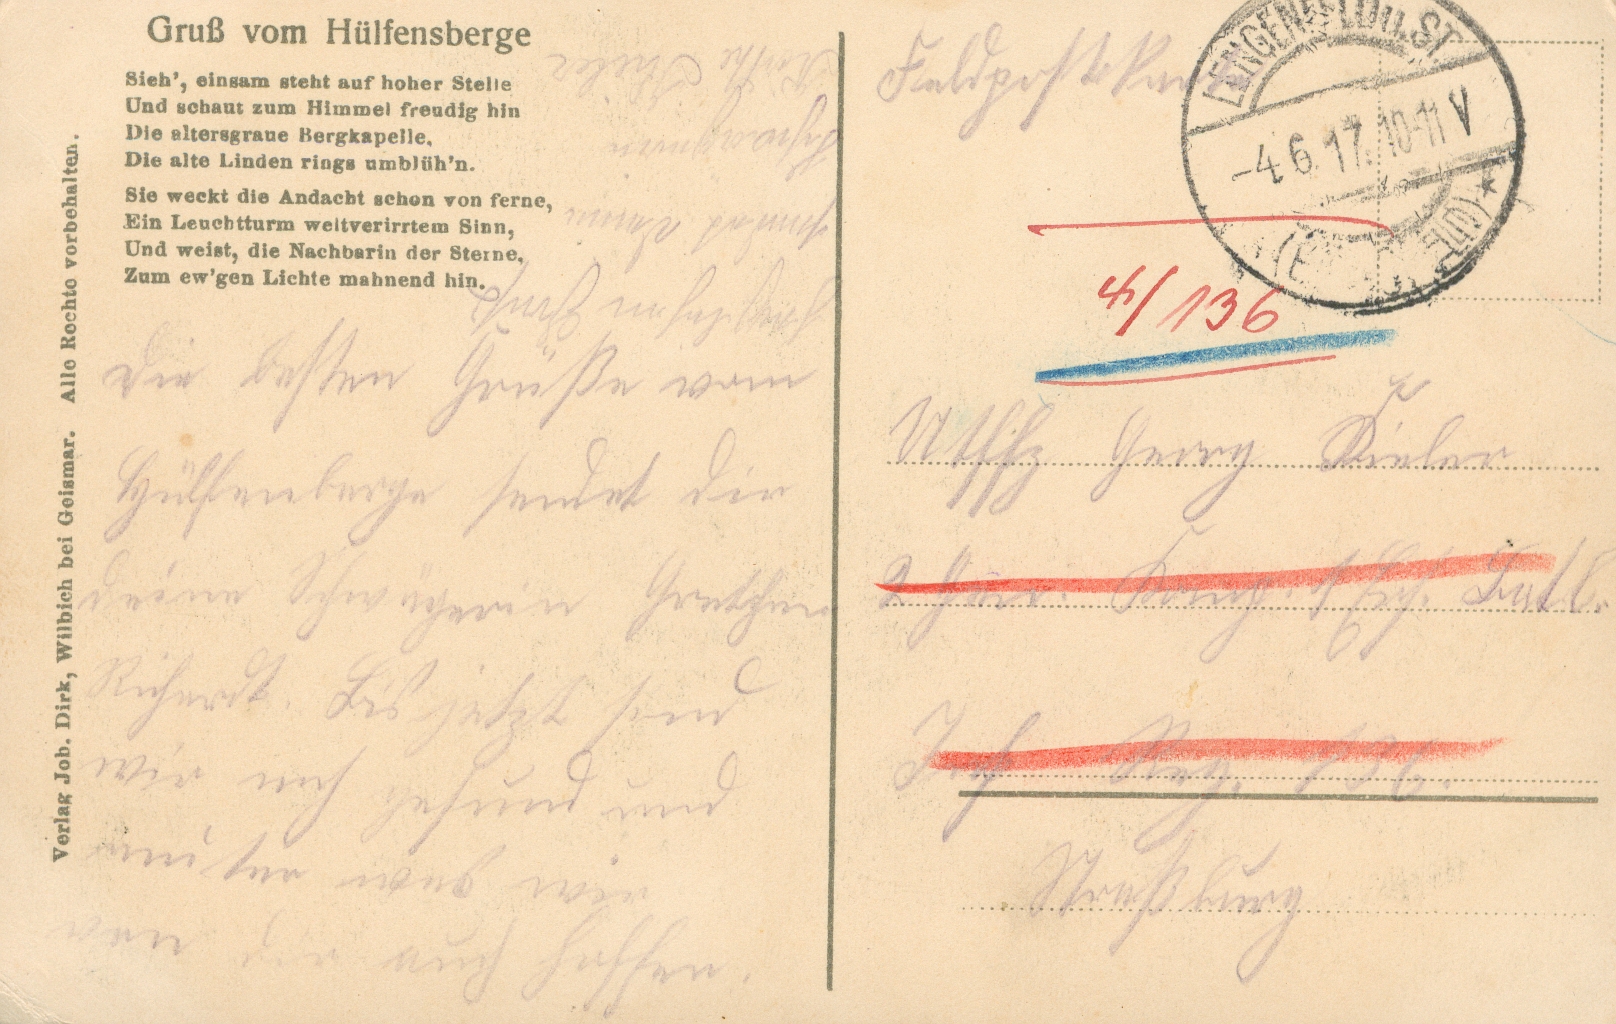 Gruß vom Hülfensberge
Sieh', einsam steht auf hoher Stelle
Und schaut zum Himmel freudig hin
Die altersgraue Bergkapelle,
Die alte Linden rings umblüh'n.
Sie weckt die Andacht schon von ferne,
Ein Leuchtturm weitverirrtem Sinn,
Und weist, die Nachbarin der Sterne,
Zum ew'gen Lichte mahnend hin.
Verlag Job. Dirk, Wilbich bei Geismar. Alle Rechte vorbehalten.
Die besten Grüße vom
Hülfenberge sendet dir
deine Schwägerin Gretchen
Richardt. Bis jetzt sind
wir noch gesund und
munter was wir
von dir auch hoffen.
Schwägerin
Feldpostkarte
LENGENFELD U. ST.
-4.6.17. 10-11 V
(EICHSFELD)
4/136
Utffz Georg Kieler
2
Inf Reg. 136.
Straßburg